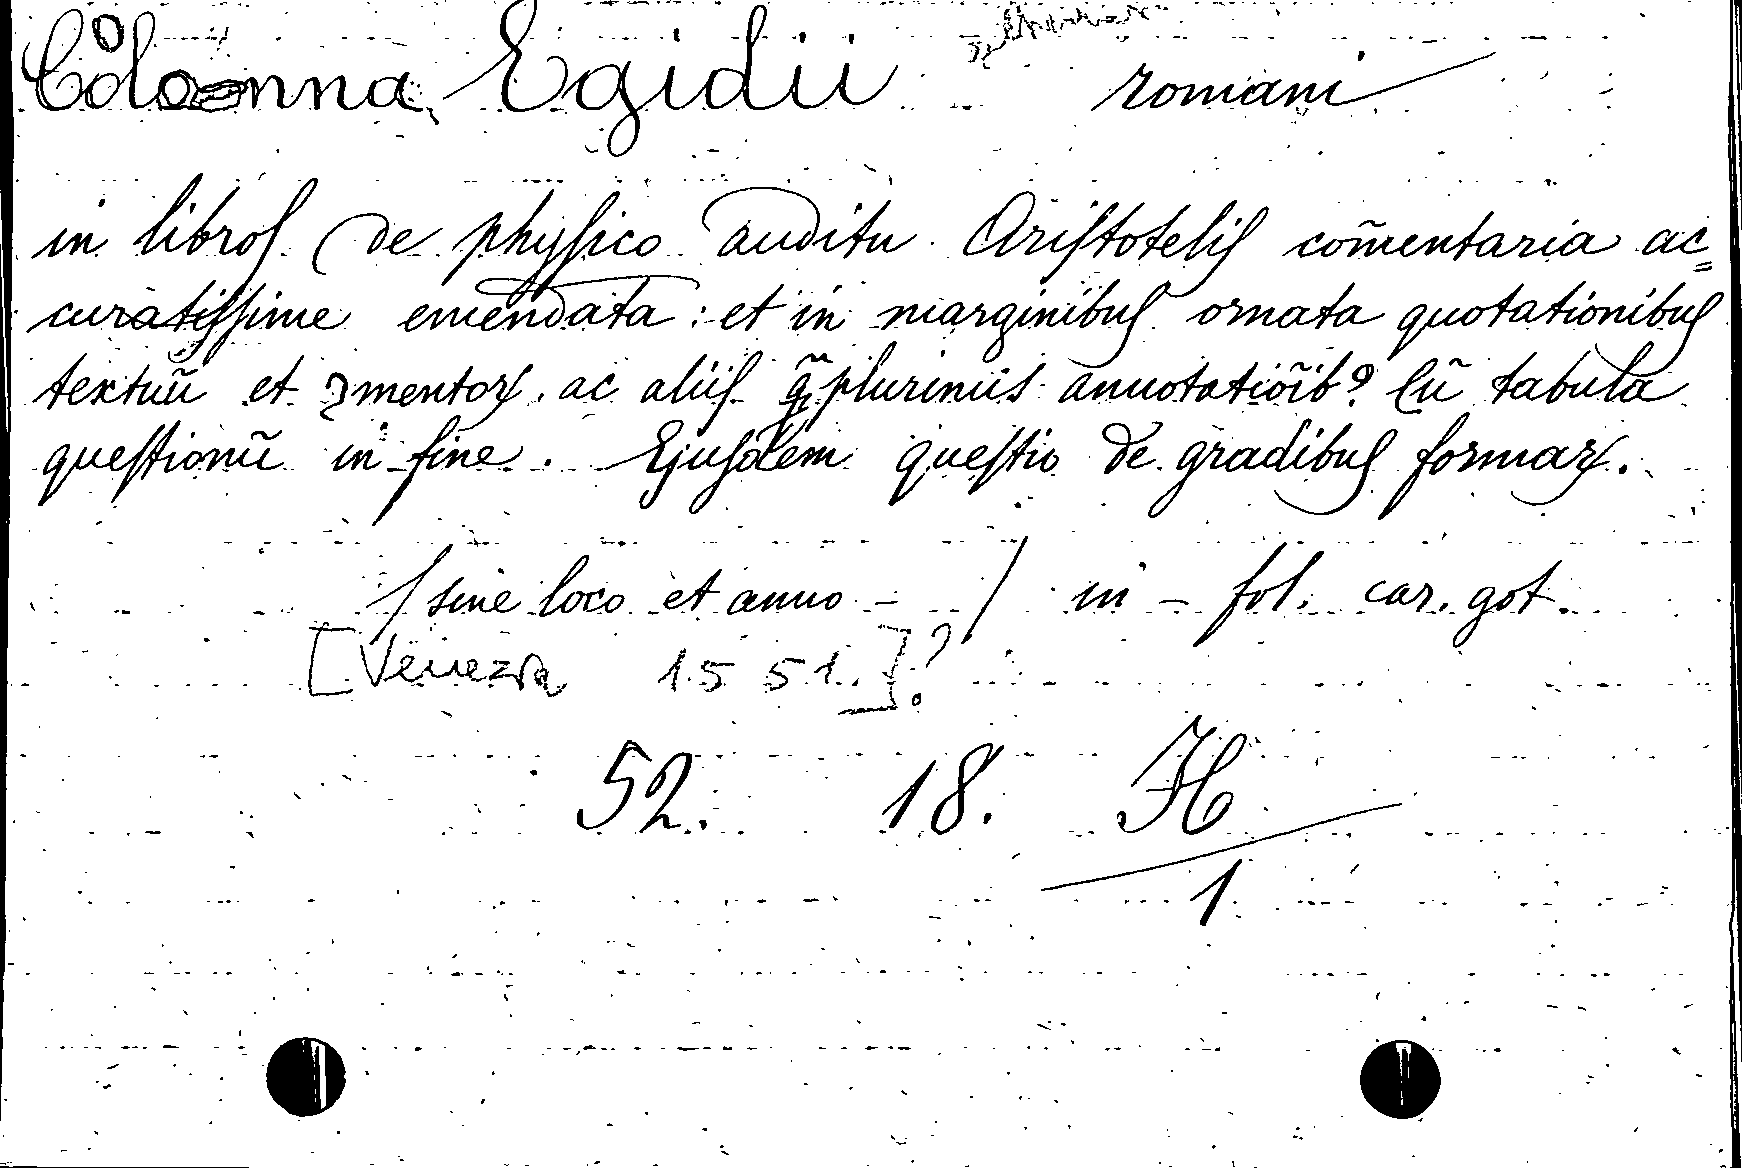 Colonna, Egidii romani
in libroſ de phyſico auditu Ariſtoteliſ com̃entaria ac=
curatiſſime emendata : et in marginibuſ ornata quotationibuſ
textuũ et ꝯmentoꝝ. ac aliiſ q̃plurimis annotatiõibꝰ Cũ tabula
queſtionũ in fine. Ejuſdem queſtio de gradibuſ formaꝝ.
/ sine loco et anno - / in - fol. car. got.
[Venezia 1551.]?
52. 18. H
1